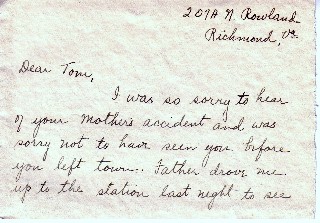 207A N. Rowland
Richmond, Va.
Dear Tom,
I was so sorry to hear
of your Mother's accident and was
sorry not to have seen you before
you left town. Father drove me
up to the station last night to see